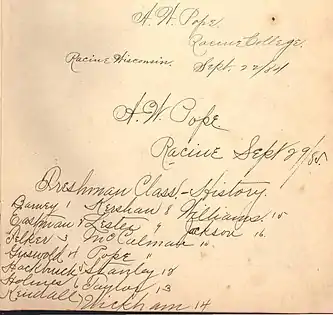 A. W. Pope
Racine College.
Racine Wisconsin. Sept. 22/84
A. W. Pope
Racine Sept 29/85
Freshman Class - History.
1 Kershaw 8 Williams 15
Eastman 2 Lester " Jackson 16
3 McCalman "
Griswold 4 Pope "
5 Stanley 12
Holmes 6 Taylor 13
Kendall 7 Wickham 14